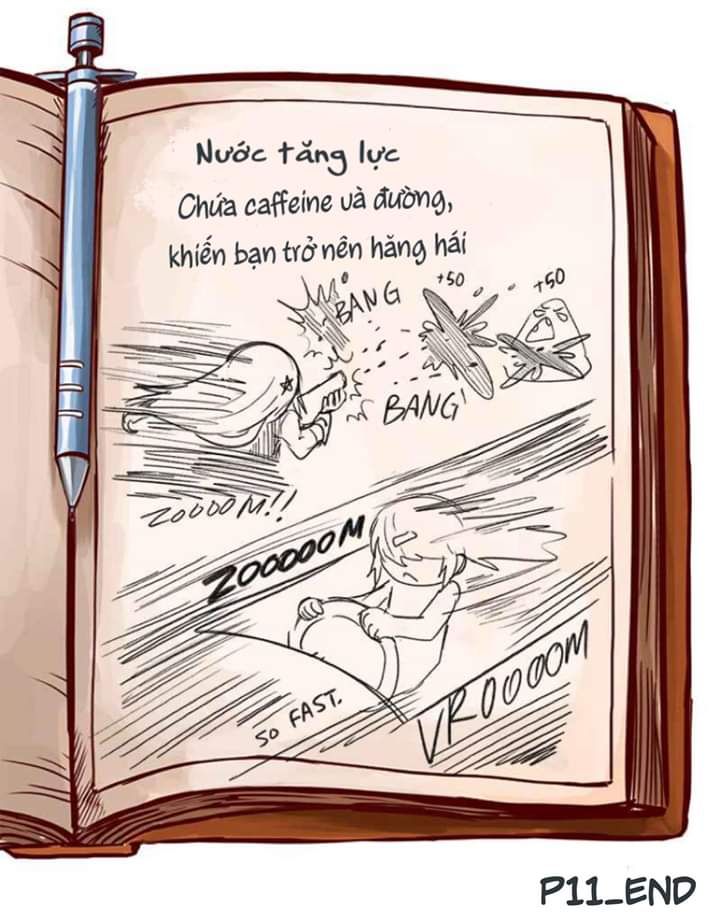 Nước tăng lực
Chứa caffeine và đường,
khiến bạn trở nên hăng hái
+50
+50
BANG
BANG!
ZOOOOM!!
ZOOOOOM
SO FAST.
VROOOOM
P11_END